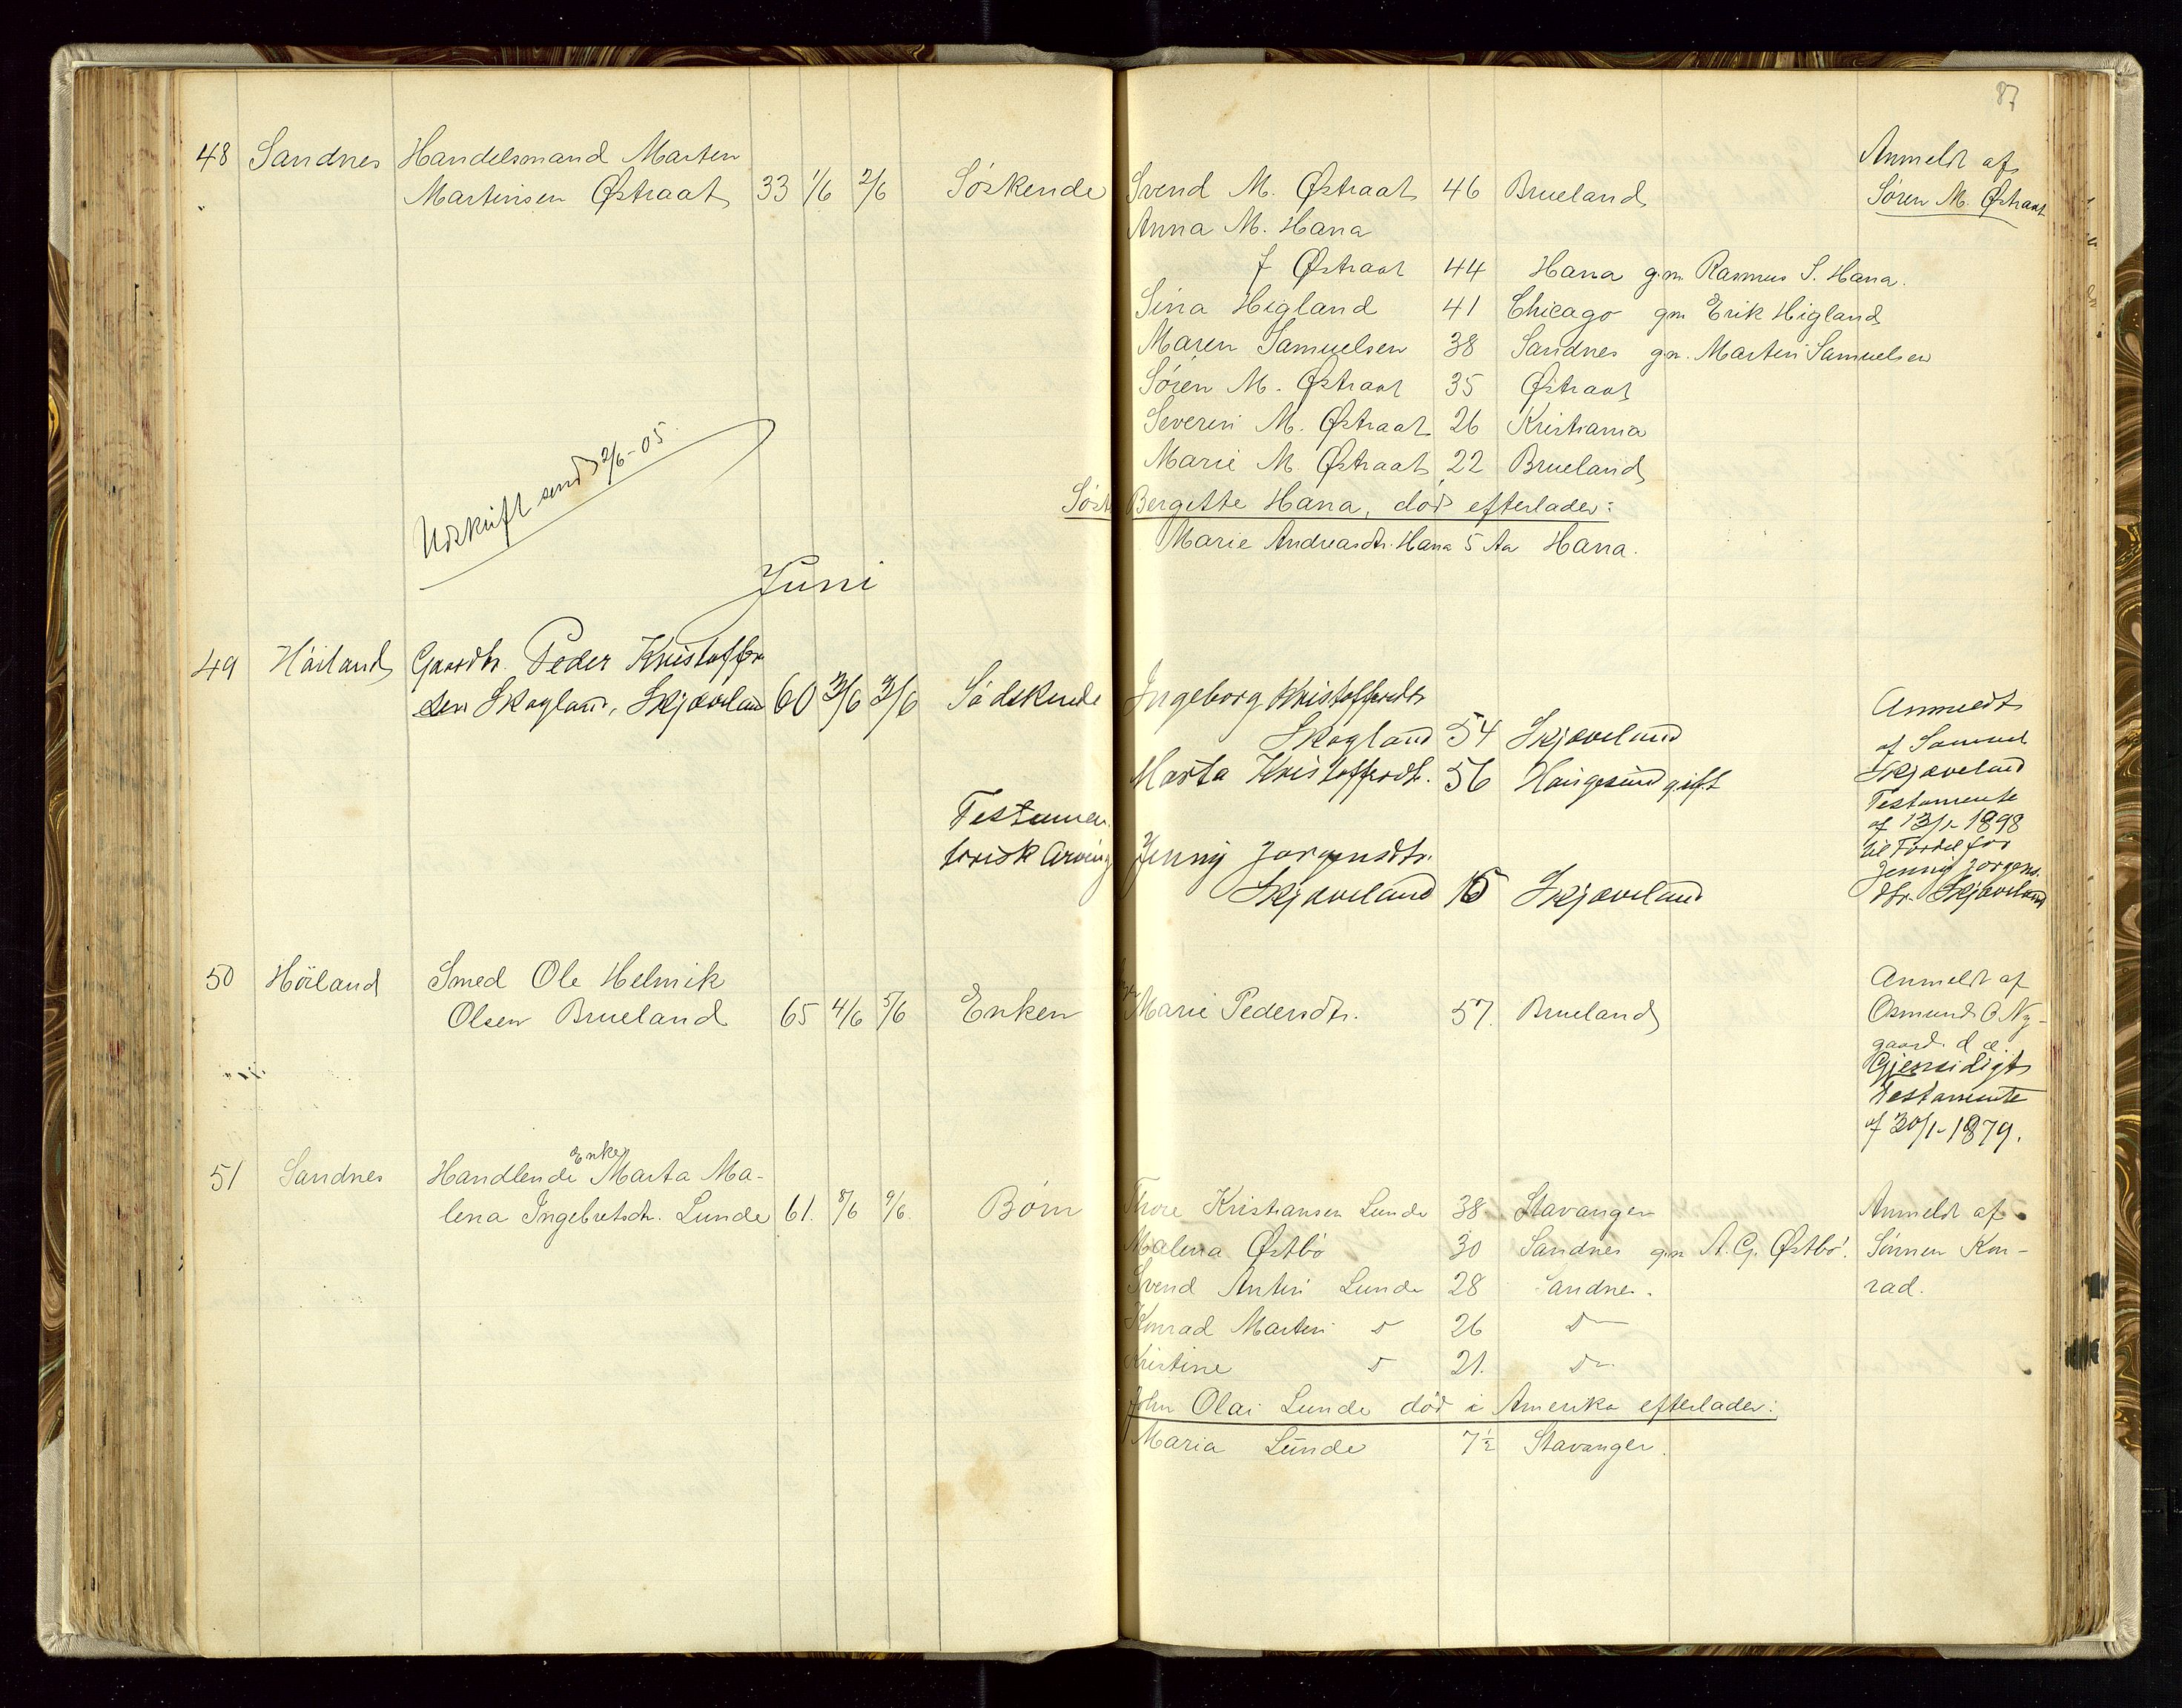 87
48 Sandnes Handelsmand Marten
Martinsen Østraat 33 1/6 2/6 Söskende
Svend M. Østraat 46 Brueland
Anna M. Hana
f Østraat 44 Hana g.m. Rasmus S. Hana.
Sina Higland 41 Chicago gm Erik Higland
Maren Samuelsen 38 Sandnes g.m. Martin Samuelsen
Sören M. Østraat 35 Østraat
Severin M. Østraat 26 Kristiania
Marie M. Østraat 22 Brueland
Søst Bergitte Hana, död efterlader:
Marie Andreasdtr. Hana 5 Aar Hana.
Anmeldt af
Søren M. Østraat
Udskrift send 2/6-05.
Juni
49 Höiland Gaardbr. Peder Kristoffer
sen Skogland, Skjæveland 60 3/6 3/6 Södskende
Ingeborg Kristoffersdtr
Skogland 54 Skjæveland
Marta Kristoffersdt. 56 Haugesund gift
Testamen
torisk Arving Jenny Jorgensdtr.
Skjæveland 15 Skjæveland
Anmeldt
af Samuel
Skjæveland
Testamente
af 13/1 1898
til Fordel for
Jenny Jorgens.
dtr. Skjæveland
50 Höiland Smed Ole Helmik
Olsen Brueland 65 4/6 5/6 Enken
Marie Pedersdtr. 57. Brueland
Anmeldt af
Osmund O Ny-
gaard. d æ.
Gjensidigt
Testamente
af 30/1-1879.
51 Sandnes Handlende Enke Marta Ma-
lena Ingebretsdtr. Lunde 61. 8/6 9/6. Börn
Thore Kristiansen Lunde 38 Stavanger
Malena Østbö 30 Sandnes gm A. G. Østbö.
Svend Antin Lunde 28 Sandnes.
Konrad Martin do 26 do
Kristine do 21. do
John Olai Lunde död i Amerika efterlader:
Maria Lunde 7½ Stavanger.
Anmeldt af
Sönnen Kon-
rad.